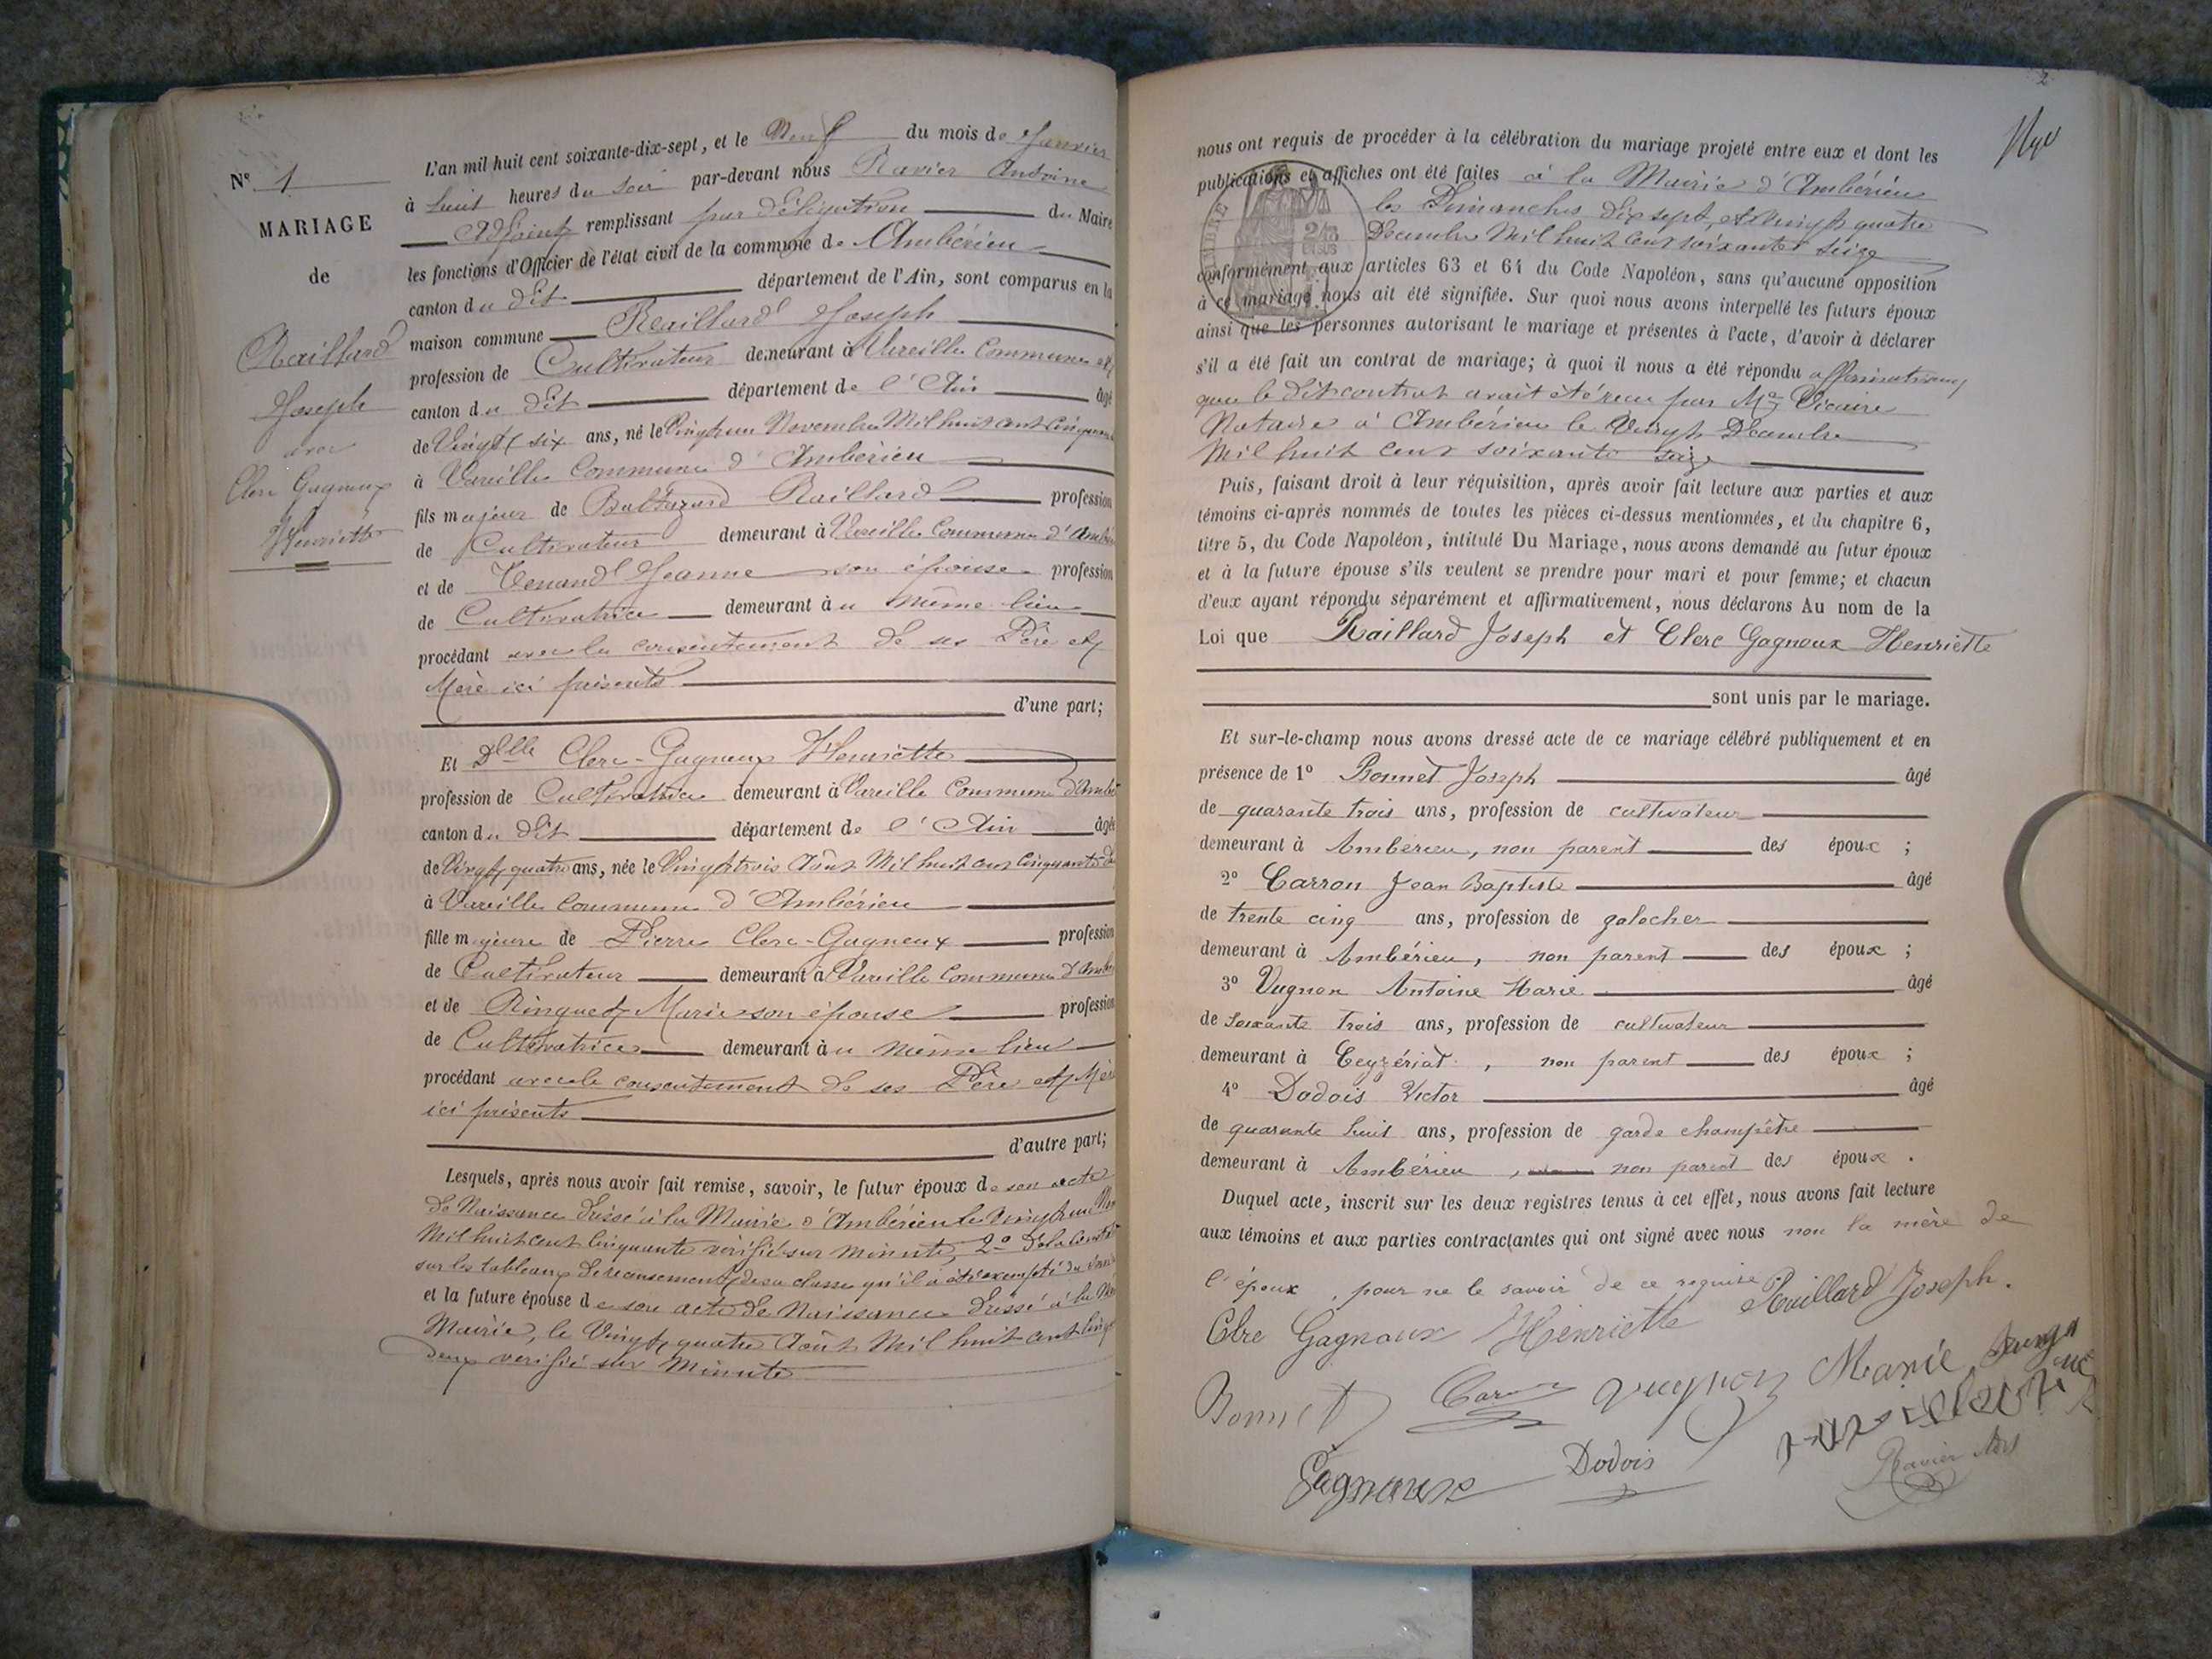 N° 1
MARIAGE
de
Raillard
Joseph
avec
Clerc Gagneux
Henriette
L'an mil huit cent soixante-dix-sept, et le Neuf du mois de Janvier
à huit heures du soir par-devant nous Ravier Antoine
Adjoint remplissant par délégation du Maire
les fonctions d'Officier de l'état civil de la commune de Ambérieu
canton du dit département de l'Ain, sont comparus en la
maison commune Raillard Joseph
profession de Cultivateur demeurant à Vareille Commune et
canton du dit département de l'Ain âgé
de Vingt six ans, né le Vingt un Novembre Mil huit cent cinquante
à Vareille Commune d'Ambérieu
fils majeur de Baltazard Raillard profession
de Cultivateur demeurant à Vareille Commune d'Ambé
et de Tenand Jeanne son épouse profession
de Cultivatrice demeurant au même lieu
procédant avec le consentement de ses Père et
Mère ici présents
d'une part;
Et Delle Clerc-Gagneux Henriette
profession de Cultivatrice demeurant à Vareille Commune d'Ambé
canton du dit département de l'Ain âgée
de Vingt quatre ans, née le Vingt trois Août Mil huit cent cinquante d
à Vareille Commune d'Ambérieu
fille majeure de Pierre Clerc-Gagneux profession
de Cultivateur demeurant à Vareille Commune d'Ambé
et de Ringuet Marie son épouse profession
de Cultivatrice demeurant au même lieu
procédant avec le consentement de ses Père et Mère
ici présents
d'autre part;
Lesquels, après nous avoir fait remise, savoir, le futur époux de son acte
de Naissance dressé à la Mairie d'Ambérieu le Vingt un Nov
Mil huit cent cinquante vérifié sur minute, 2° De la
sur les tableaux de recensement de sa classe qu'il a été exempté du
et la future épouse de son acte de Naissance dressé à la
Mairie, le Vingt quatre Août Mil huit cent cinq
deux vérifié sur Minute
2
nous ont requis de procéder à la célébration du mariage projeté entre eux et dont les
publications et affiches ont été faites à la Mairie d'Ambérieu
les Dimanches Dix sept, et Vingt quatre
Décembre Mil huit cent soixante seize
conformément aux articles 63 et 64 du Code Napoléon, sans qu'aucune opposition
à ce mariage nous ait été signifiée. Sur quoi nous avons interpellé les futurs époux
ainsi que les personnes autorisant le mariage et présentes à l'acte, d'avoir à déclarer
s'il a été fait un contrat de mariage; à quoi il nous a été répondu affirmativement
que le dit contrat avait été reçu par Me Vicaire
Notaire à Ambérieu le Vingt Décembre
Mil huit cent soixante seize
Puis, faisant droit à leur réquisition, après avoir fait lecture aux parties et aux
témoins ci-après nommés de toutes les pièces ci-dessus mentionnées, et du chapitre 6,
titre 5, du Code Napoléon, intitulé Du Mariage, nous avons demandé au futur époux
et à la future épouse s'ils veulent se prendre pour mari et pour femme; et chacun
d'eux ayant répondu séparément et affirmativement, nous déclarons Au nom de la
Loi que Raillard Joseph et Clerc Gagneux Henriette
sont unis par le mariage.
Et sur-le-champ nous avons dressé acte de ce mariage célébré publiquement et en
présence de 1° Bonnet Joseph âgé
de quarante trois ans, profession de cultivateur
demeurant à Ambérieu, non parent des époux ;
2° Carron Jean Baptiste âgé
de trente cinq ans, profession de galocher
demeurant à Ambérieu, non parent des époux ;
3° Vugnon Antoine Marie âgé
de soixante trois ans, profession de cultivateur
demeurant à Ceyzériat, non parent des époux ;
4° Dodois Victor âgé
de quarante huit ans, profession de garde champêtre
demeurant à Ambérieu, non parent des époux.
Duquel acte, inscrit sur les deux registres tenus à cet effet, nous avons fait lecture
aux témoins et aux parties contractantes qui ont signé avec nous non la mère de
l'époux, pour ne le savoir de ce requise Raillard Joseph.
Clre Gagnaux Henriette
Bonnet Car Vugnon Marie
Gagneux Dodois Ravier